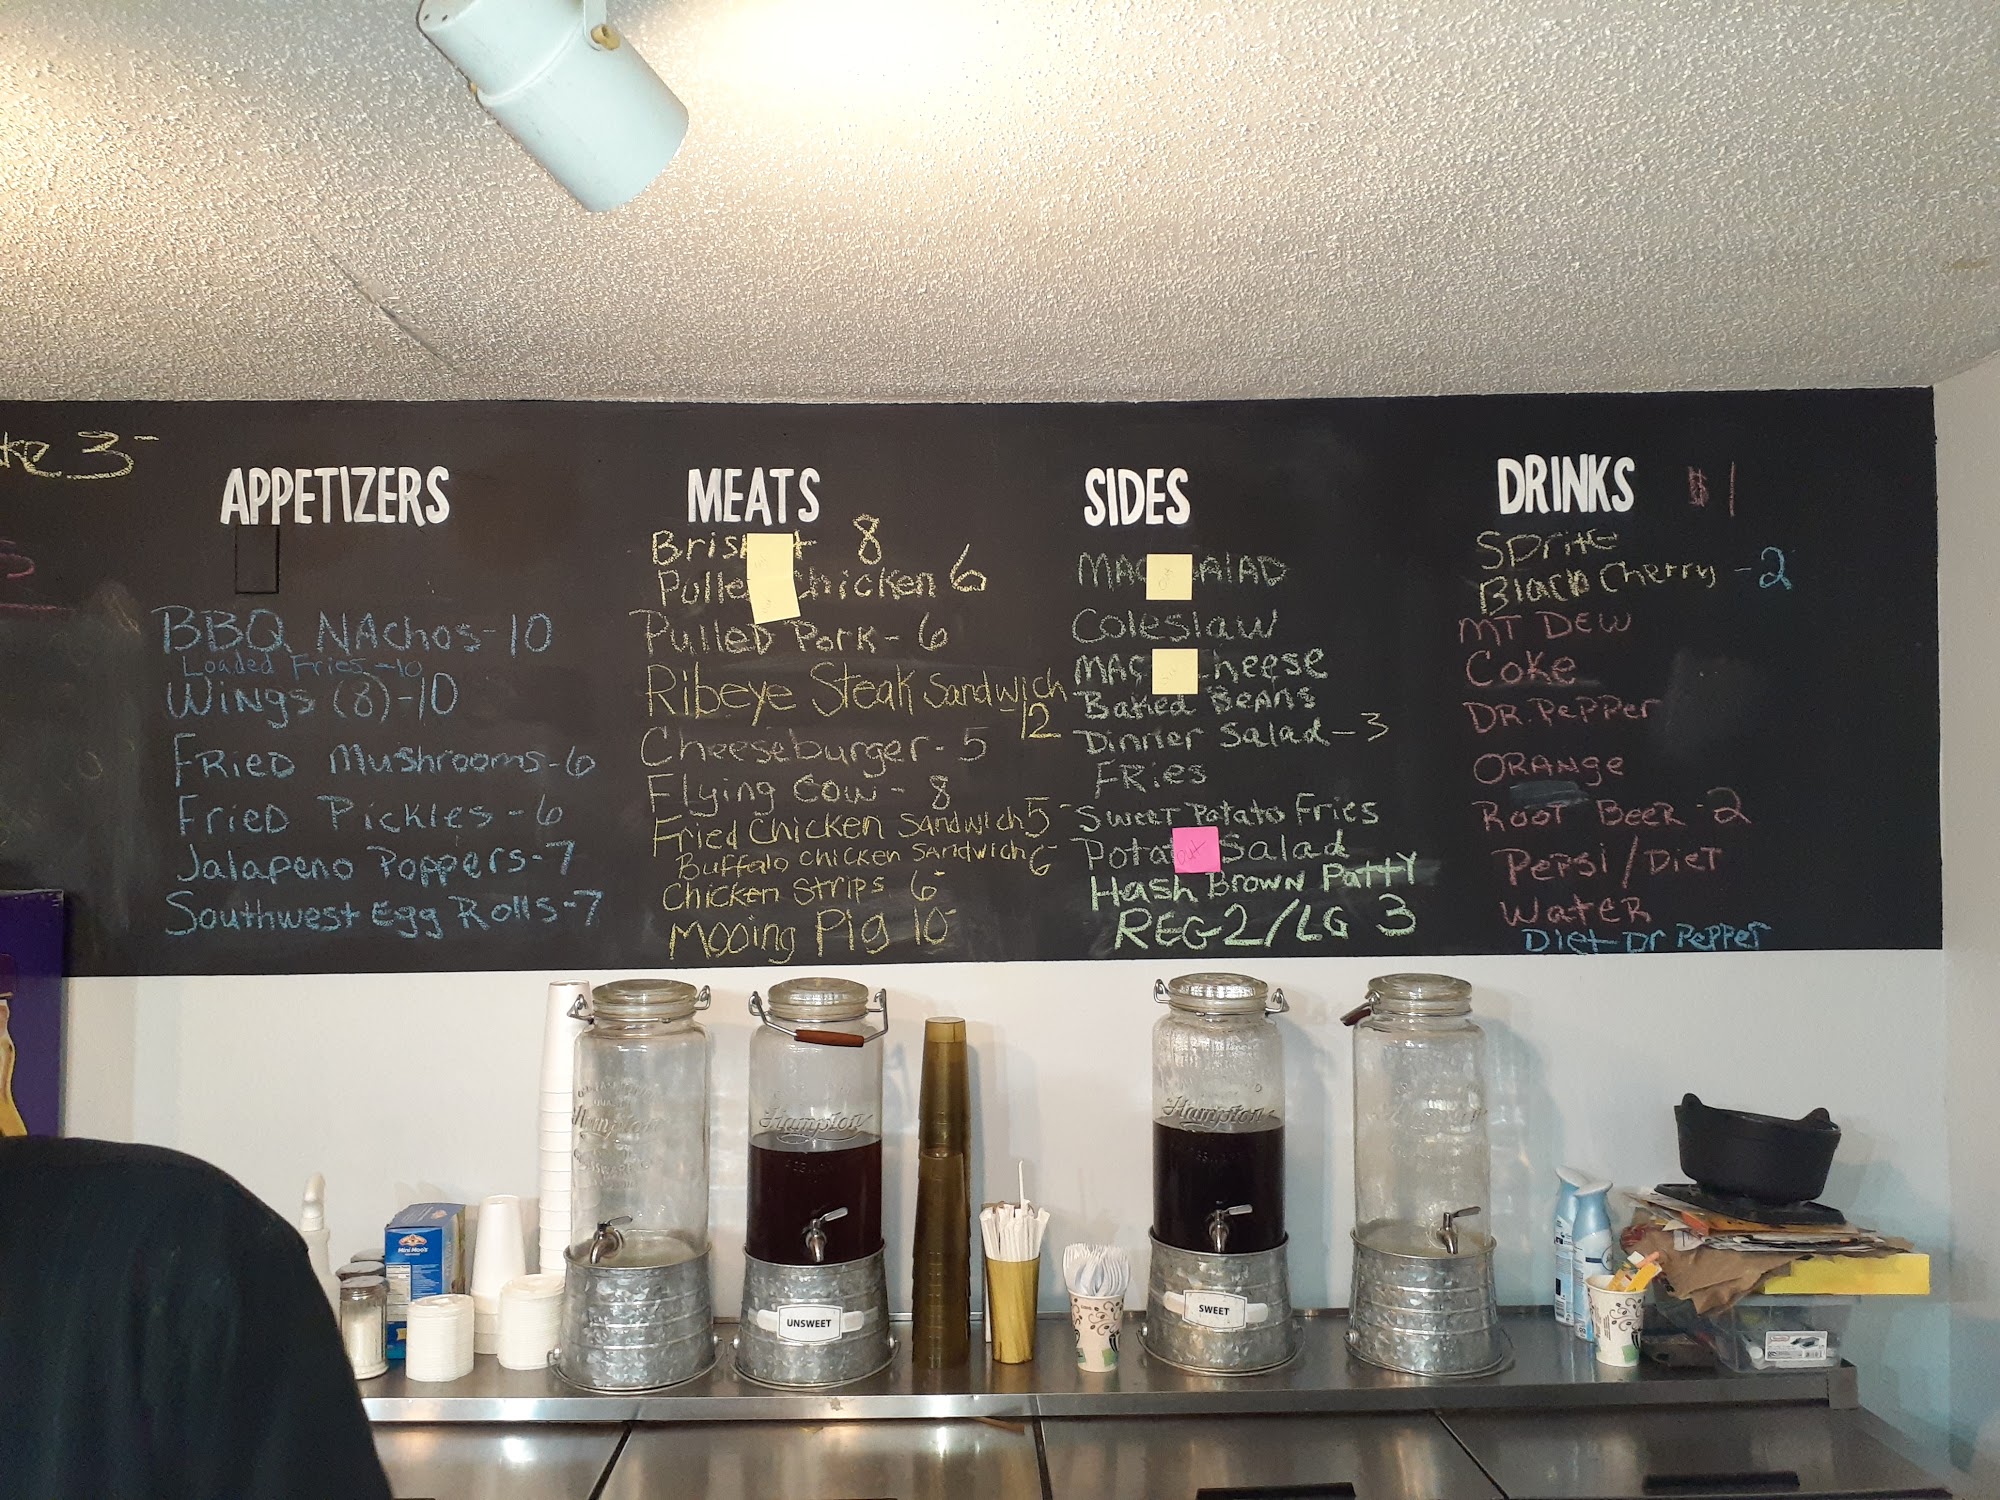 3-
APPETIZERS
BBQ NAchos-10
Loaded Fries-10
Wings (8)-10
FRieD Mushrooms-6
FRieD Pickles-6
Jalapeno Poppers-7
Southwest Egg Rolls-7
MEATS
8
chicken 6
Pulled Pork-6
Ribeye Steak Sandwich
12
Cheeseburger-5
Flying Cow-8
Fried Chicken Sandwich 5-
Buffalo Chicken Sandwich 6-
Chicken Strips 6-
Mooing Pig 10-
SIDES
MAC
Coleslaw
MAC
Baked BEANS
Dinner Salad-3
FRies
Sweet Potato Fries
out Salad
Hash BROWN PaTTY
REG-2/LG 3
DRINKS $1
Sprite
Black Cherry-2
MT DEW
Coke
DR.PePPER
ORANge
ROOT BEER-2
Pepsi/DieT
WateR
Diet Dr Pepper
Hampton
Hampton
Hampton
UNSWEET
SWEET